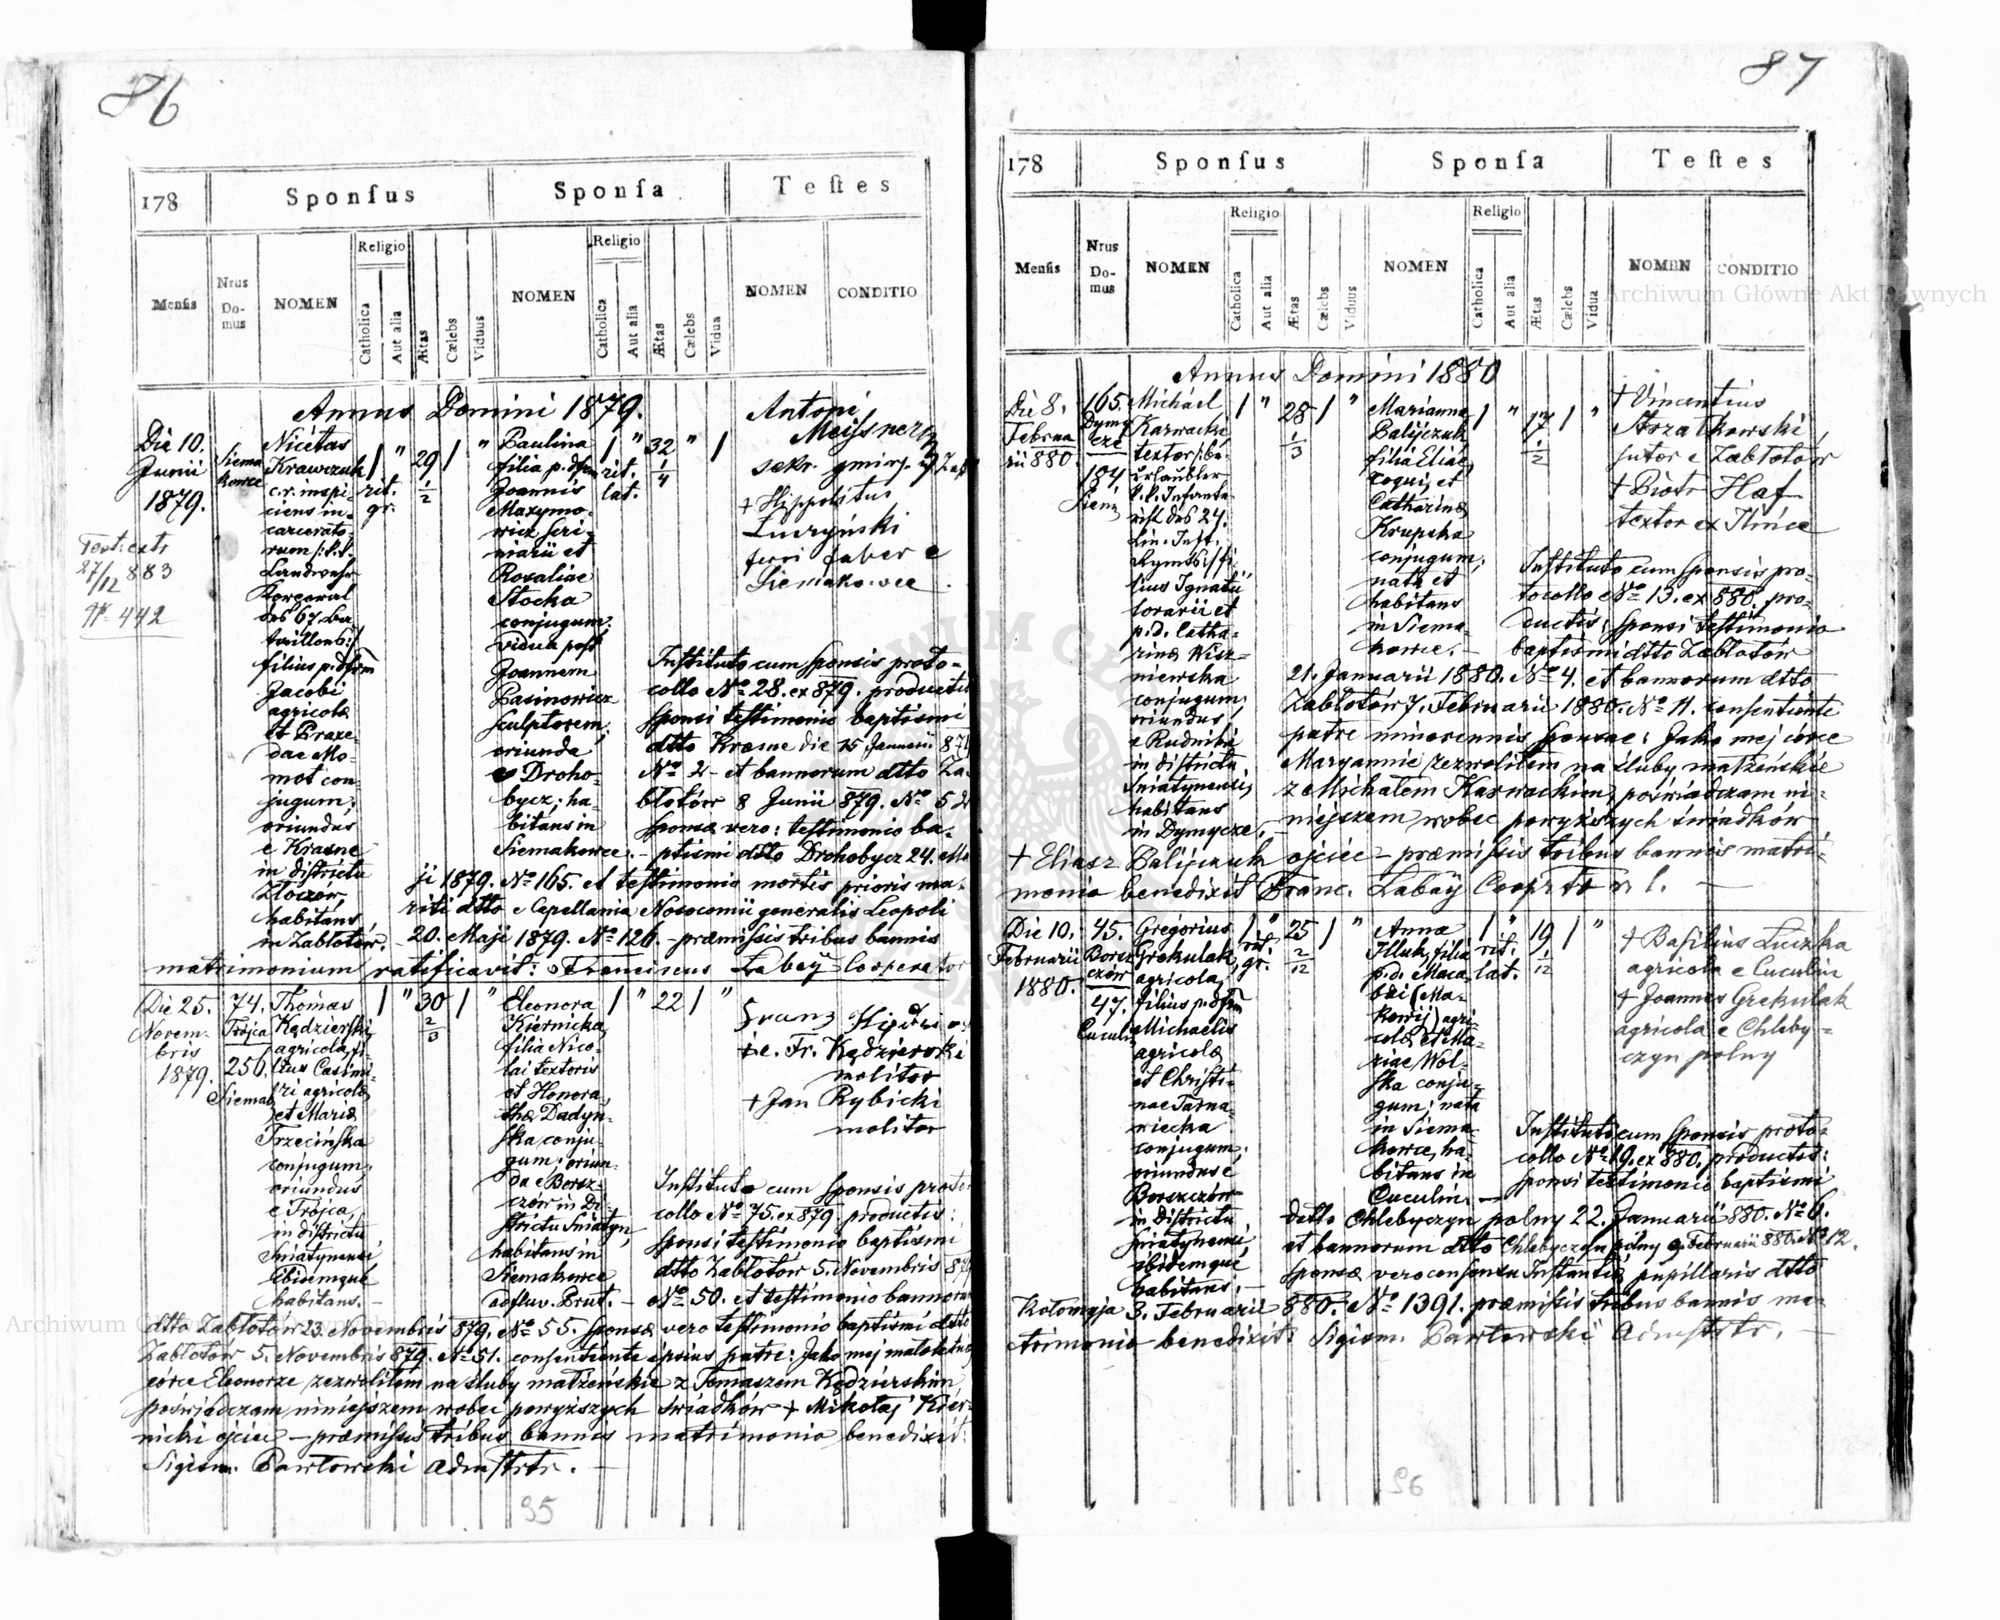 86
178
Sponſus
Sponſa
Teſtes
Menſis
Nrus Domus
NOMEN
Religio
Catholica
Aut alia
Ætas
Cælebs
Viduus
NOMEN
Religio
Catholica
Aut alia
Ætas
Cælebs
Vidua
NOMEN
CONDITIO
Annus Domini 1879.
Die 10.
Junii
1879.
Siema
kowce
Nicetas
Krawczuk
c.r. inspi
ciens in-
carcerato-
rum
Landwehr
Korporal
des 67. Ba-
taillons
filius p. dfm
Jacobi
agricolæ
et Praxe-
dae Mo-
mot con-
jugum;
oriundus
e Krasne
in districtu
Złoczów,
habitans
in Zabłotów.
rit.
gr.
29
1/2
Paulina
filia p. dfm
Joannis
Maxymo-
wicz scri-
niarii et
Rosaliae
Stocka
conjugum;
vidua post
Joannem
Pasinowicz
sculptorem;
oriunda
e Droho-
bycz; ha-
bitans in
Siemakowce.
rit.
lat.
32
1/4
Antoni
Meysner
sekr. gminy
+ Hippolitus
Łuczyński
ferri faber e
Siemakowce
27/12 883
N 442
Instituto cum sponsis proto-
collo No 28. ex 879. productis
sponsi testimonio baptismi
dtto Krasne die 15 Januarii
No 2 et bannorum dtto Za-
błotów 8 Junii 879. No 52
sponsæ vero: testimonio ba-
ptismi dtto Drohobycz 24. Ma
ji 1879. No 165. et testimonio mortis prioris ma-
riti dtto e Capellania Nosocomii generalis Leopoli
20. Maji 1879. No 126. - præmissis tribus bannis
matrimonium ratificavit: Franciscus Łabay Cooperator
Die 25.
Novem-
bris
1879.
74.
Trójca
256.
Siemak
Thomas
Kędzierski
agricola, fi-
lius Casimi-
ri agricolæ
et Mariæ
Trzecińska
conjugum;
oriundus
e Trójca,
in districtu
Sniatynensi
ibidemque
habitans. -
30
2/3
Eleonora
Kiernicka
filia Nico-
lai textoris
et Honora-
thæ Dadyn-
ska conju-
gum; oriun-
da e Borsz-
czów in Di-
strictu Sniatyn,
habitans in
Siemakowce
adfluv. Prut. -
22
Franz
+ e. Fr. Kędzierski
molitor
+ Jan Rybicki
molitor
Instituto cum sponsis proto
collo No 75. ex 879 productis:
sponsi testimonio baptismi
dtto Zabłotów 5. Novembris 879
No 50. et testimonio bannorum
dtto Zabłotów 23. Novembris 879. No 55. sponsæ vero testimonio baptismi dtto
Zabłotów 5. Novembris 879. No 51. consentiente ipsius patre: Jako mej małoletniej
córce Eleonorze zezwoliłem na śluby małżeńskie z Tomaszem Kędzierskim
poświadczam niniejszem wobec powyższych świadków + Mikołaj Kier-
nicki ojciec - præmissis tribus bannis matrimonio benedixit:
Sigism. Pawłowski Admstrtr. -
95
87
178
Sponſus
Sponſa
Teſtes
Menſis
Nrus Domus
NOMEN
Religio
Catholica
Aut alia
Ætas
Cælebs
Viduus
NOMEN
Religio
Catholica
Aut alia
Ætas
Cælebs
Vidua
NOMEN
CONDITIO
Annus Domini 1880
Die 8.
Februa
rii 880.
165.
Dymy
cze
184
Siem
Michael
Karwacki
textor
Urlauber
k.k. Infante
rist des 24.
Lin. Inft.
Rgmts fi-
lius Ignatii
lorarii et
p.d. Catha-
rinæ Wisz-
niewska
conjugum;
oriundus
e Rudniki
in districtu
Sniatynensi,
habitans
in Dymycze. -
28
1/3
Marianna
Balijczuk
filia Eliæ,
coqui, et
Catharinæ
Krupska
conjugum;
nata et
habitans
in Siema-
kowce. -
17
1/2
+ Vincentius
Strzałkowski
sutor e Zabłotów
+ Piotr Haf
textor ex Ilince
Instituto cum sponsis pro-
tocollo No 13. ex 880. pro-
ductis: sponsi testimonio
baptismi dtto Zabłotów
21. Januarii 1880. No 4. et bannorum dtto
Zabłotów 7. Februarii 1880. No 11. consentiente
patre minorennis sponsae: Jako mej córce
Maryannie zezwoliłem na śluby małżeńskie
z Michałem Karwackim, poświadczam ni-
niejszem wobec powyższych świadków
+ Eliasz Balijczuk ojciec - præmissis tribus bannis matri-
monio benedixit Franc. Łabay Cooprtor r. l. -
Die 10.
Februarii
1880.
45.
Borsz
czów
47.
Cuculin
Gregorius
Grekulak,
agricola,
filius p. dfm
Michaelis
agricolæ
et Christi-
nae Tarna-
wiecka
conjugum;
oriundus e
Borszczów
in Districtu
Sniatynensi,
ibidemque
habitans. -
rit.
gr.
25
2/12
Anna
Illuk, filia
p.d. Maca-
bæi (Ma-
kowij) agri-
colæ et Ma-
riae Wol-
ska conju-
gum; nata
in Siema-
kowce, ha-
bitans in
Cuculin. -
rit.
lat.
19
1/12
+ Basilius Luczka
agricola e Cuculin
+ Joannes Grekulak
agricola e Chleby-
czyn polny
Instituto cum sponsis proto-
collo No 19. ex 880. productis:
sponsi testimonio baptismi
datto Chlebyczyn polny 22. Januarii 880. No 6.
et bannorum dtto Chlebyczyn polny 9 Februarii 880. No 12.
sponsæ vero consensu Instantiæ pupillaris dtto
Kołomyja 3. Februarii 880. No 1391. præmissis tribus bannis ma-
trimonio benedixit: Sigism. Pawłowski Admstrtr. -
96
Archiwum Główne Akt Dawnych